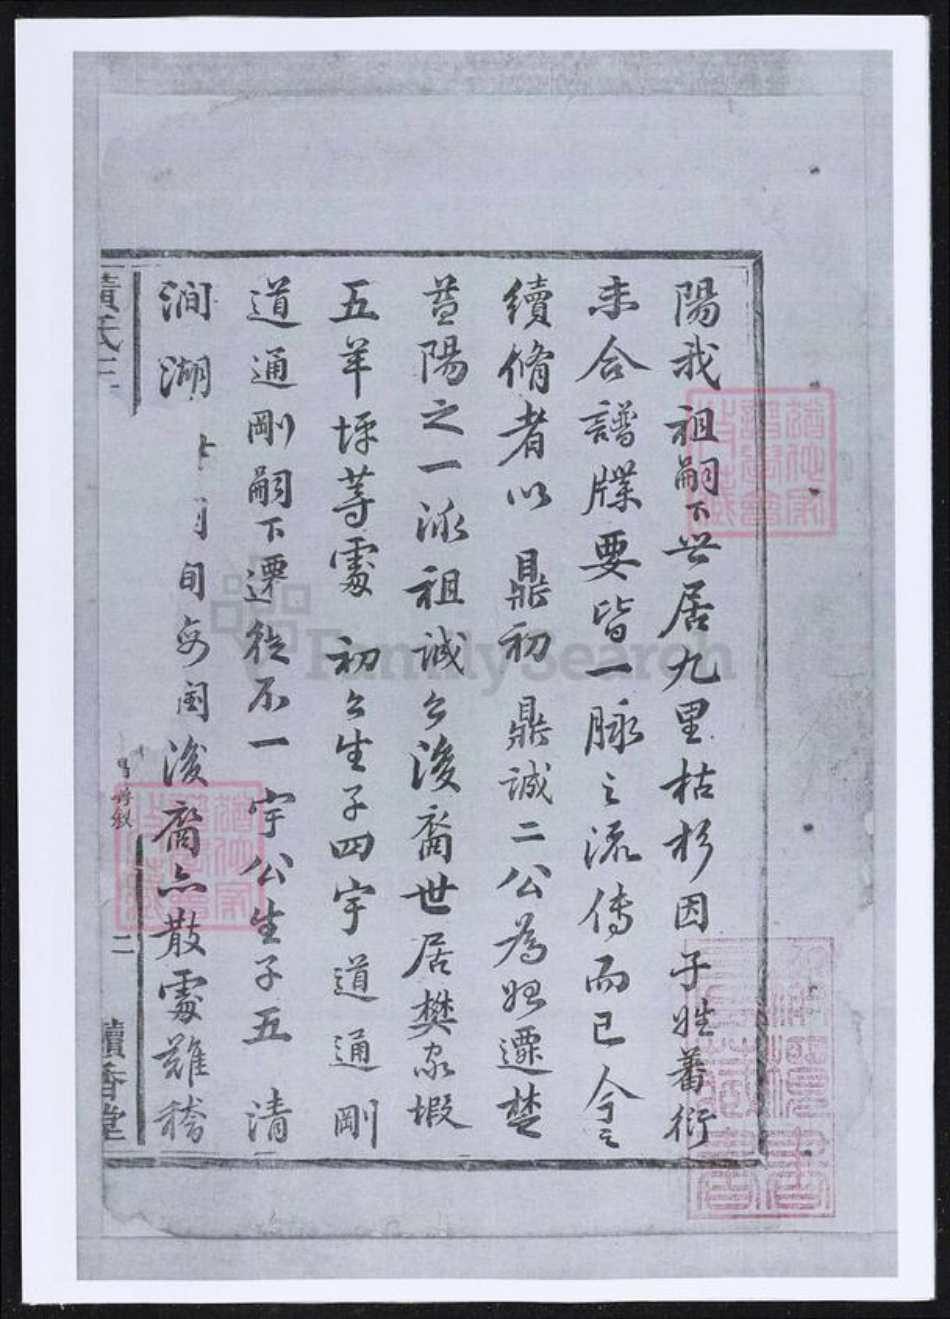 陽我祖嗣下世居九里枯杉因子姓蕃衍
未合譜牒要皆一脉之流傳而已今之
續脩者以 鼎初 鼎誠二公為始遷楚
益陽之一派祖誠公後裔世居樊家塅
五羊坪等處 初公生子四宇道通剛
道通剛嗣下遷徙不一宇公生子五 清
澗湖 旬 後裔亦散處難稽
黃氏
二
續香堂
FamilySearch